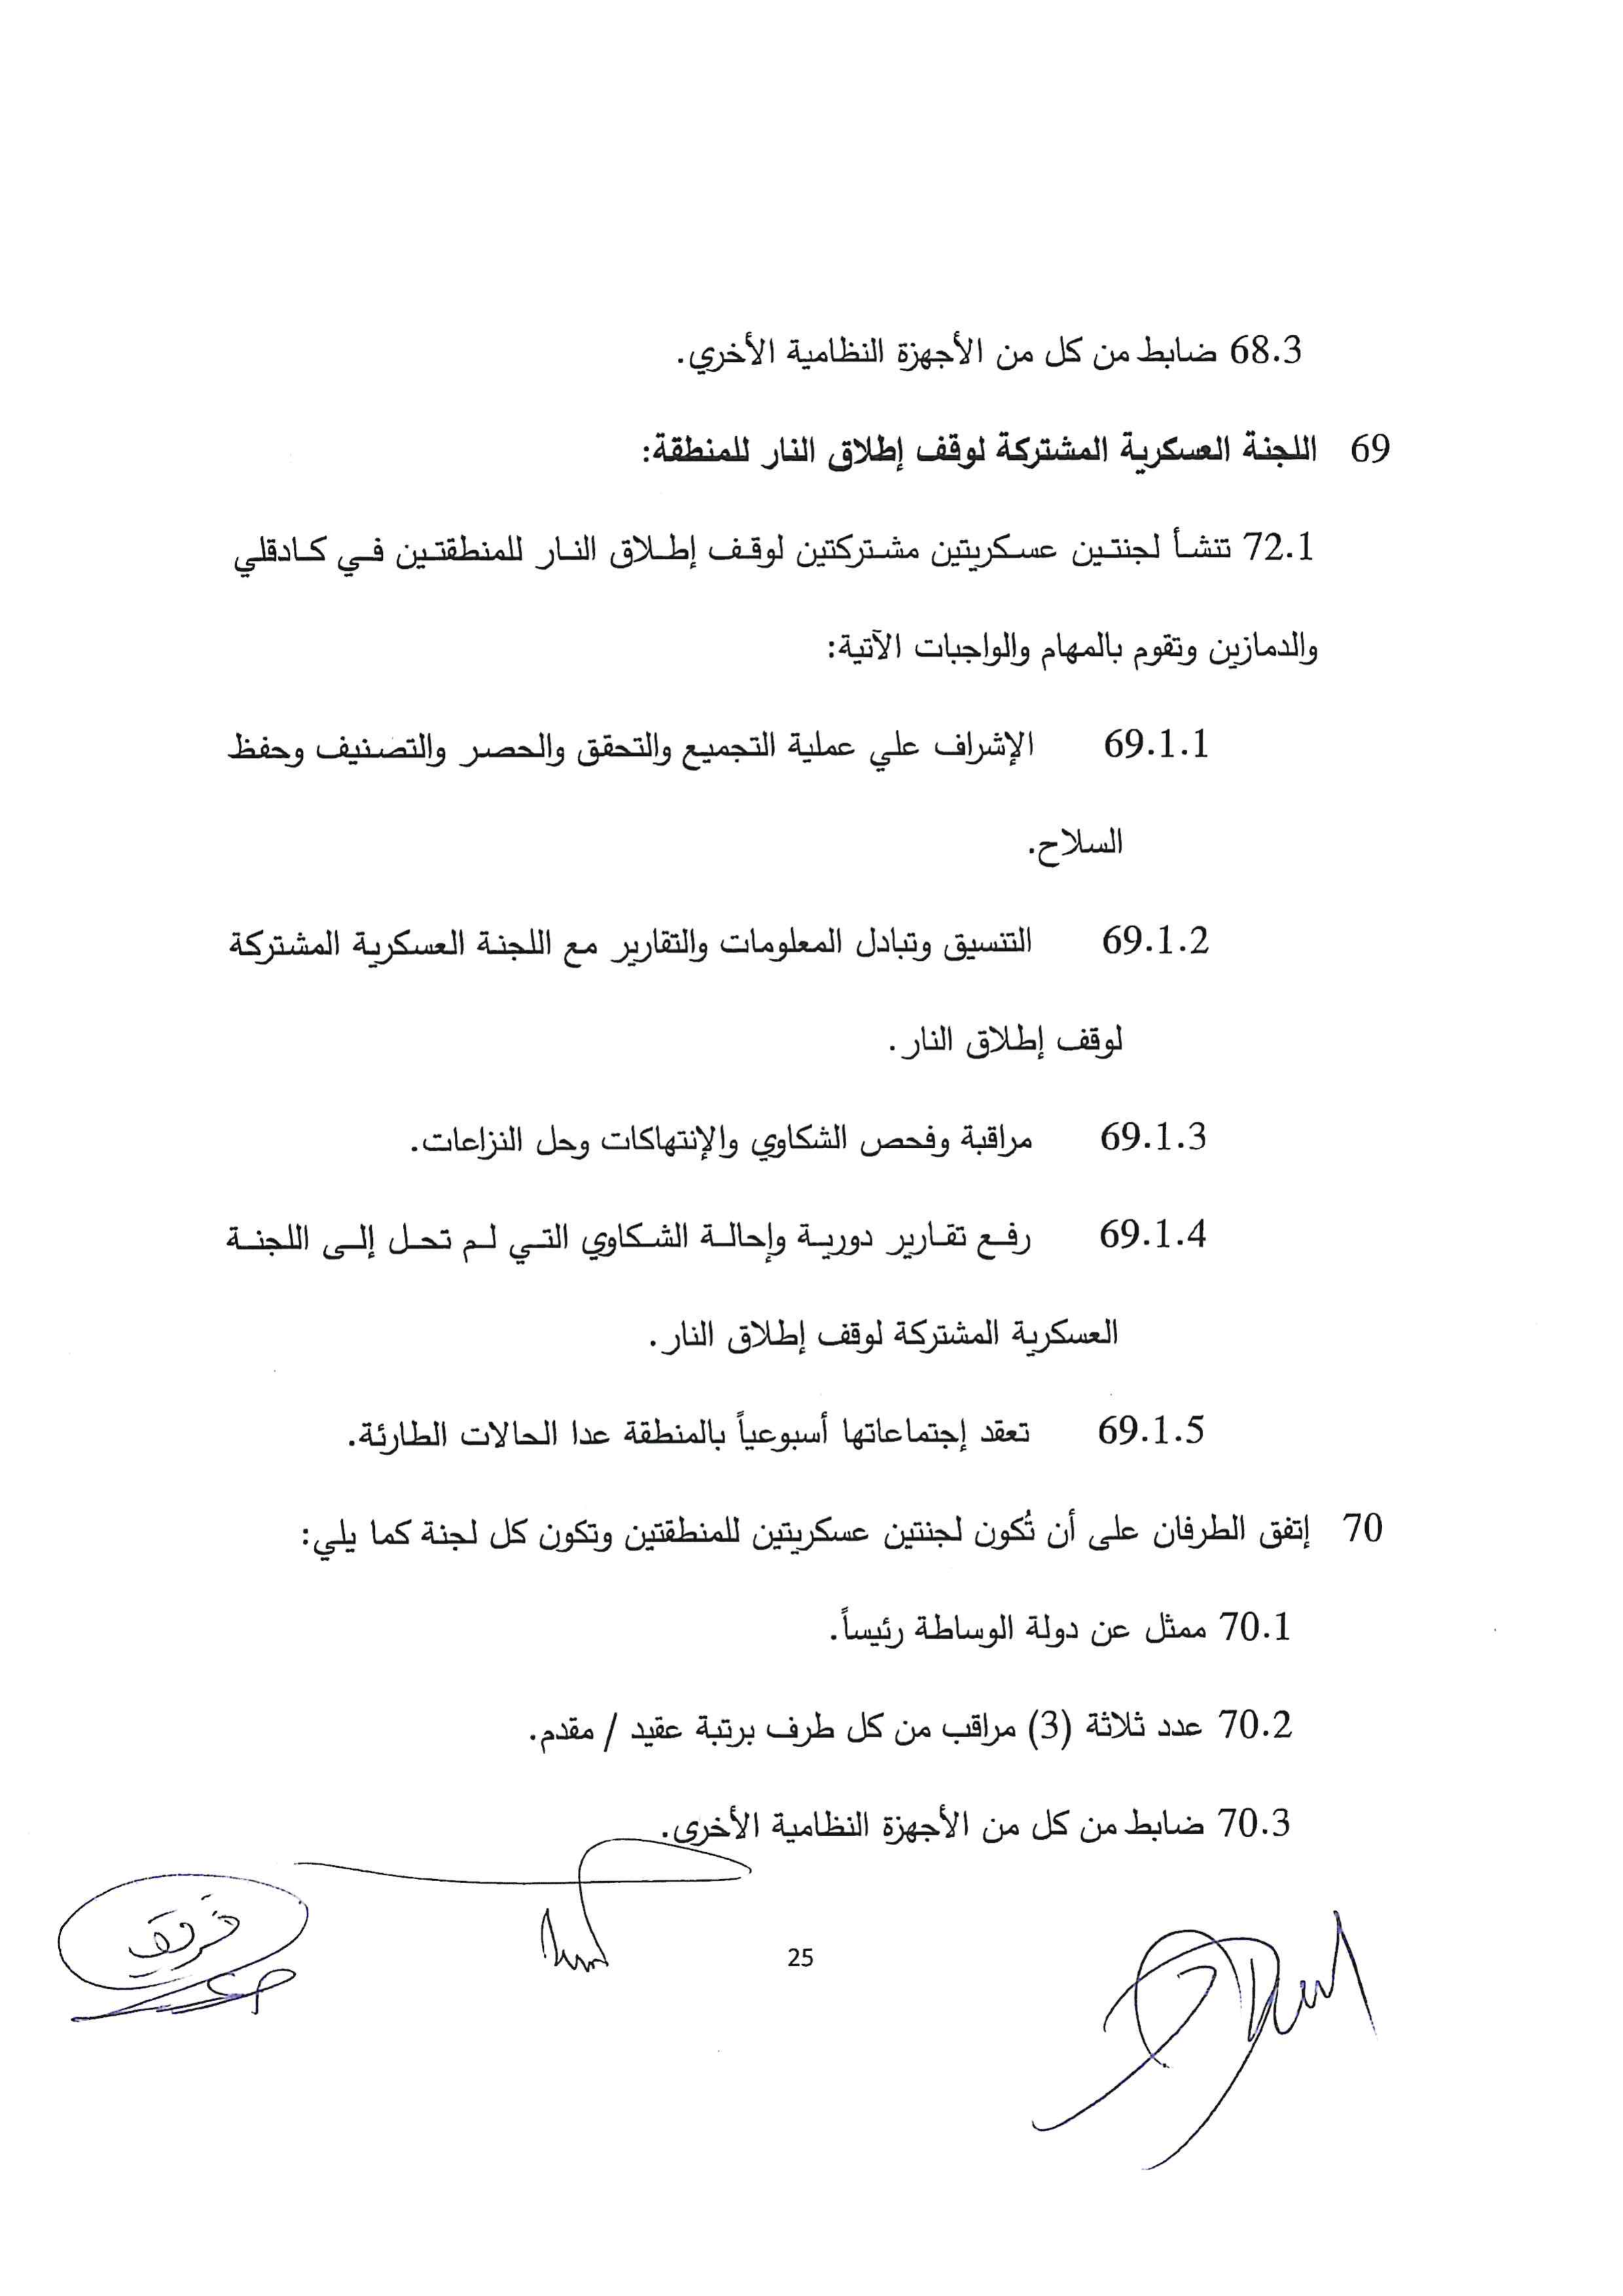 68.3 ضابط من كل من الأجهزة النظامية الأخري.
69 اللجنة العسكرية المشتركة لوقف إطلاق النار للمنطقة:
72.1 تنشأ لجنتين عسكريتين مشتركتين لوقف إطلاق النار للمنطقتين في كادقلي
والدمازين وتقوم بالمهام والواجبات الآتية:
69.1.1 الإشراف علي عملية التجميع والتحقق والحصر والتصنيف وحفظ
السلاح.
69.1.2 التنسيق وتبادل المعلومات والتقارير مع اللجنة العسكرية المشتركة
لوقف إطلاق النار.
69.1.3 مراقبة وفحص الشكاوي والإنتهاكات وحل النزاعات.
69.1.4 رفع تقارير دورية وإحالة الشكاوي التي لم تحل إلى اللجنة
العسكرية المشتركة لوقف إطلاق النار.
69.1.5 تعقد إجتماعاتها أسبوعياً بالمنطقة عدا الحالات الطارئة.
70 إتفق الطرفان على أن تُكون لجنتين عسكريتين للمنطقتين وتكون كل لجنة كما يلي:
70.1 ممثل عن دولة الوساطة رئيساً.
70.2 عدد ثلاثة (3) مراقب من كل طرف برتبة عقيد / مقدم.
70.3 ضابط من كل من الأجهزة النظامية الأخرى.
25